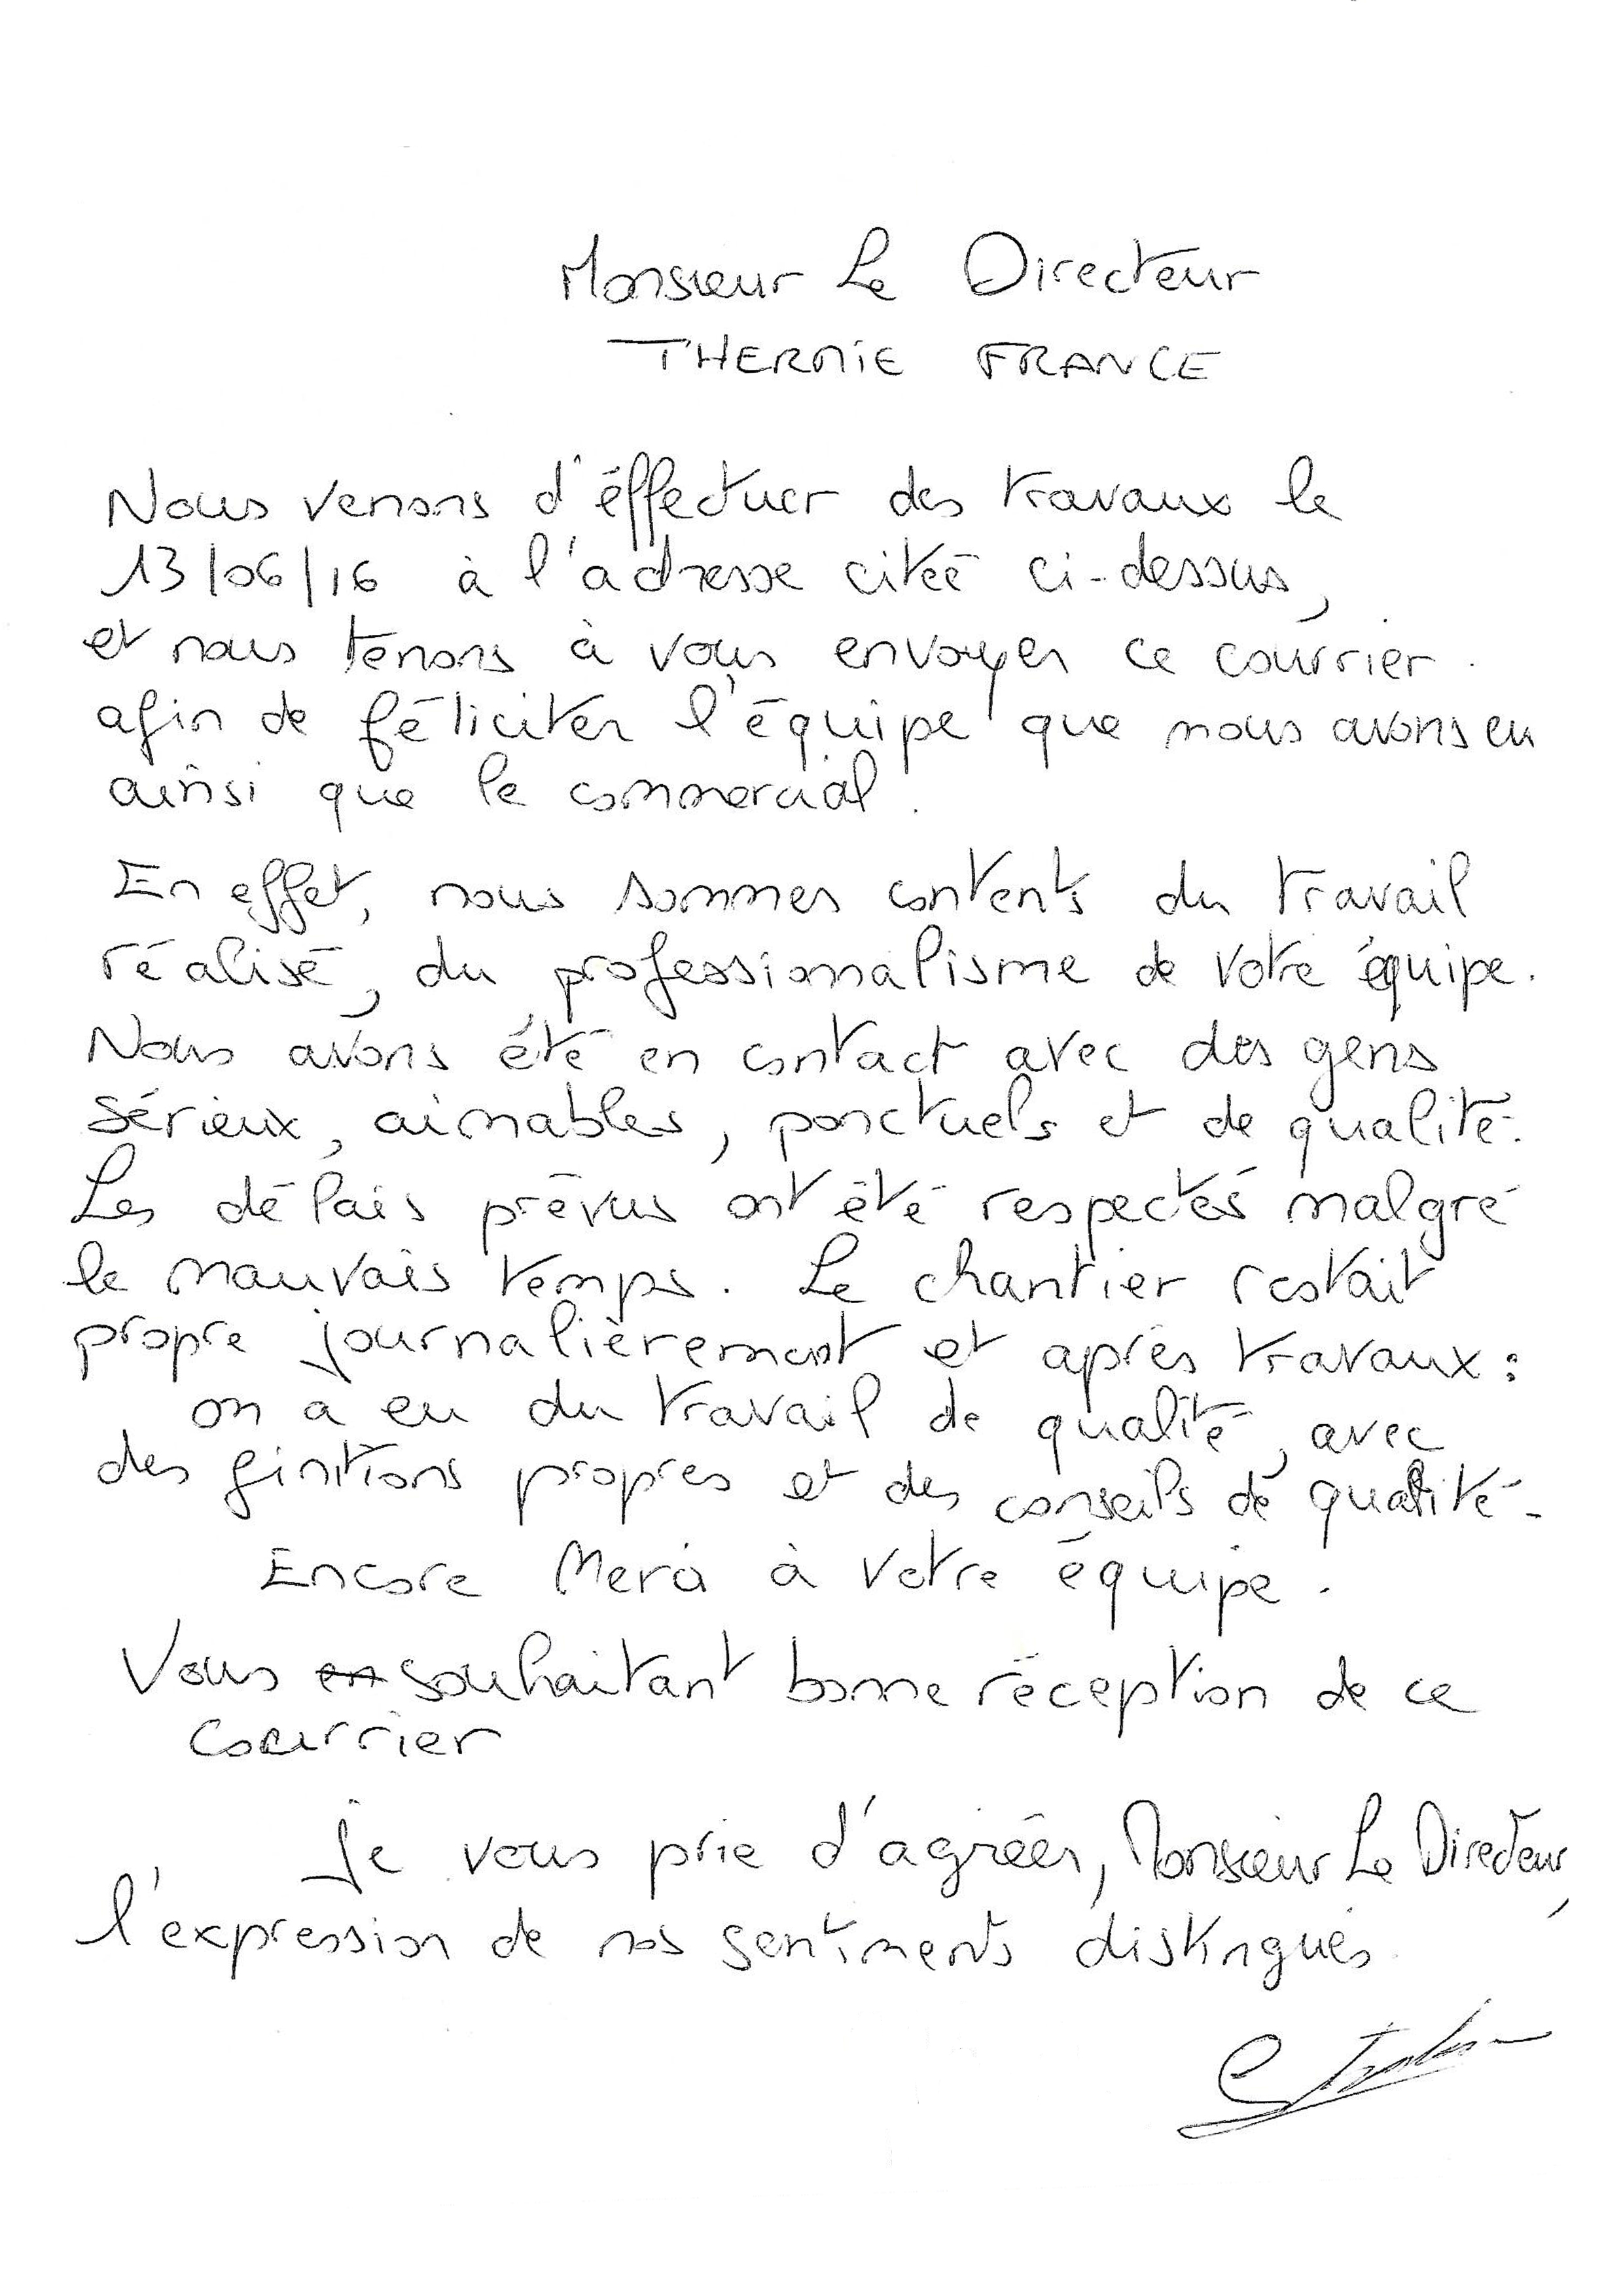 Monsieur Le Directeur
THERMIE FRANCE
Nous venons d'éffectuer des travaux le
13/06/16 à l'adresse citée ci-dessus,
et nous tenons à vous envoyer ce courrier
afin de féliciter l'équipe que nous avons eu
ainsi que le commercial.
En effet, nous sommes contents du travail
réalisé, du professionnalisme de votre équipe.
Nous avons été en contact avec des gens
sérieux, aimables, ponctuels et de qualité.
Les délais prévus ont été respectés malgré
le mauvais temps. Le chantier restait
propre journalièrement et après travaux :
on a eu du travail de qualité, avec
des finitions propres et des conseils de qualité.
Encore Merci à votre équipe.
Vous en souhaitant bonne réception de ce
courrier
Je vous prie d'agréer, Monsieur Le Directeur,
l'expression de nos sentiments distingués.